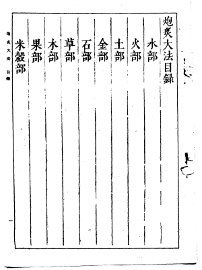 炮炙大法目錄
水部
火部
土部
金部
石部
草部
木部
果部
米穀部
炮炙大法 目錄
一